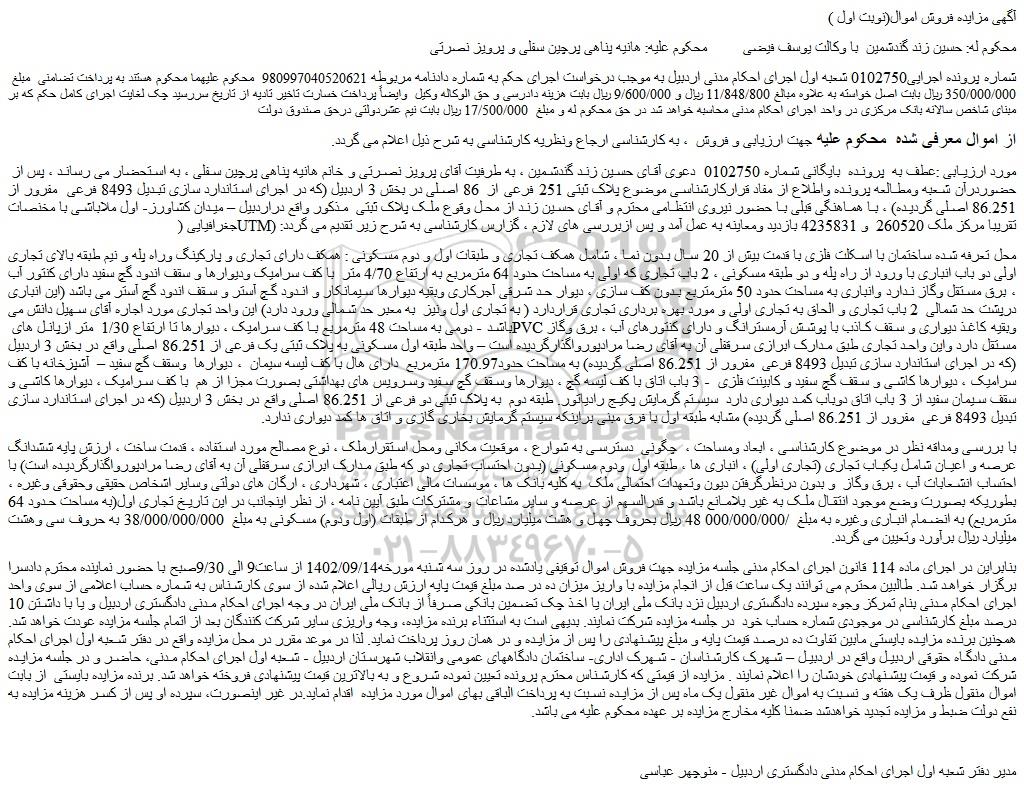 آگهی مزایده فروش اموال(نوبت اول )
محکوم له: حسین زند گندشمین  با وکالت یوسف فیضی        محکوم علیه: هانیه پناهی پرچین سفلی و پرویز نصرتی
شماره پرونده اجرایی0102750 شعبه اول اجرای احکام مدنی اردبیل به موجب درخواست اجرای حکم به شماره دادنامه مربوطه 980997040520621  محکوم علیهما محکوم هستند به پرداخت تضامنی  مبلغ
350/000/000 ریال بابت اصل خواسته به علاوه مبالغ 11/848/800 ریال و 9/600/000 ریال بابت هزینه دادرسی و حق الوکاله وکیل  وایضاً پرداخت خسارت تاخیر تادیه از تاریخ سررسید چک لغایت اجرای کامل حکم که بر
مبنای شاخص سالانه بانک مرکزی در واحد اجرای احکام مدنی محاسبه خواهد شد در حق محکوم له و مبلغ  17/500/000 ریال بابت نیم عشردولتی درحق صندوق دولت
از اموال معرفی شده  محکوم علیه جهت ارزیابی و فروش  ، به کارشناسی ارجاع ونظریه کارشناسی به شرح ذیل اعلام می گردد.
مورد ارزیابی :عطف به  پرونده  بایگانی شماره 0102750  دعوی آقای حسین زند گندشمین ، به طرفیت آقای پرویز نصرتی و خانم هانیه پناهی پرچین سفلی ، به استحضار می رساند ، پس از
حضوردرآن شعبه ومطالعه پرونده واطلاع از مفاد قرارکارشناسی موضوع پلاک ثبتی 251 فرعی از  86 اصلی در بخش 3 اردبیل (که در اجرای استاندارد سازی تبدیل 8493 فرعی  مفروز از
86.251 اصلی گردیده) ، با هماهنگی قبلی با حضور نیروی انتظامی محترم و آقای حسین زند از محل وقوع ملک پلاک ثبتی  مذکور واقع دراردبیل – میدان کشاورز- اول ملاباشی با مختصات
تقریبا مرکز ملک 260520  و 4235831 بازدید ومعاینه به عمل آمد و پس ازبررسی های لازم ، گزارس کارشناسی به شرح زیر تقدیم می گردد: (UTMجغرافیایی (
محل تعرفه شده ساختمان با اسکلت فلزی با قدمت بیش از 20 سال بدون نما ، شامل همکف تجاری و طبقات اول و دوم مسکونی : همکف دارای تجاری و پارکینگ وراه پله و نیم طبقه بالای تجاری
اولی دو باب انباری با ورود از راه پله و دو طبقه مسکونی ، 2 باب تجاری که اولی به مساحت حدود 64 مترمربع به ارتفاع 4/70 متر  با کف سرامیک ودیوارها و سقف اندود گچ سفید دارای کنتور آب
، برق مستقل وگاز ندارد وانباری به مساحت حدود 50 مترمتریع بدون کف سازی ، دیوار حد شرقی آجرکاری وبقیه دیوارها سیمانکار و اندود گچ آستر و سقف اندود گچ آستر می باشد (این انباری
درپشت حد شمالی  2 باب تجاری و الحاق به تجاری اولی و مورد بهره برداری تجاری قراردارد ( به تجاری اول ونیز  به معبر حد شمالی ورود دارد) این واحد تجاری مورد اجاره آقای سهیل دانش می
باشد - دومی به مساحت 48 مترمربع با کف سرامیک ، دیوارها تا ارتفاع 1/30  متر ازپانل های PVCوبقیه کاغذ دیواری و سقف کاذب با پوشش آرمسترانگ و دارای کنتورهای آب ، برق وگاز
مستقل دارد واین واحد تجاری طبق مدارک ابرازی سرقفلی آن به آقای رضا مرادپورواگذارگردیده است – واحد طبقه اول مسکونی به پلاک ثبتی یک فرعی از 86.251 اصلی واقع در بخش 3 اردبیل
(که در اجرای استاندارد سازی تبدیل 8493 فرعی  مفروز از 86.251 اصلی گردیده) به مساحت حدود170.97 مترمربع  دارای هال با کف لیسه سیمان  ، دیوارها  وسقف گچ سفید – آشپزخانه با کف
سرامیک ، دیوارها کاشی و سقف گچ سفید و کابینت فلزی  - 3 باب اتاق با کف لیسه گچ ، دیوارها وسقف گچ سفید وسرویس های بهداشتی بصورت مجزا از هم  با کف سرامیک ، دیوارها کاشی و
سقف سیمان سفید از 3 باب اتاق دوباب کمد دیواری دارد  سیستم گرمایش پکیج رادیاتور  طبقه دوم  به پلاک ثبتی دو فرعی از 86.251 اصلی واقع در بخش 3 اردبیل (که در اجرای استاندارد سازی
تبدیل 8493 فرعی  مفروز از 86.251 اصلی گردیده) مشابه طبقه اول با فرق مبنی براینکه سیستم گرمایش بخاری گازی و اتاق ها کمد دیواری ندارد.
با بررسی ومداقه نظر در موضوع کارشناسی ، ابعاد ومساحت ،  چگونی  دسترسی به شوارع ، موقعیت مکانی ومحل استقرارملک ، نوع مصالح مورد استفاده ، قدمت ساخت ، ارزش پایه ششدانگ
عرصه و اعیان شامل یکباب تجاری (تجاری اولی) ، انباری ها ، طبقه اول  ودوم مسکونی (بدون احتساب تجاری دو که طبق مدارک ابرازی سرقفلی آن به آقای رضا مرادپورواگذارگردیده است) با
احتساب انشعابات آب ، برق وگاز  و بدون درنظرگرفتن دیون وتعهدات احتمالی ملک  به کلیه بانک ها ، موسسات مالی اعتباری ، شهرداری ، ارگان های دولتی وسایر اشخاص حقیقی وحقوقی وغیره ،
بطوریکه بصورت وضع موجود انتقال ملک به غیر بلامانع باشد و قدرالسهم از عرصه و سایر مشاعات و مشترکات طبق آیین نامه ، از نظر اینجانب در این تاریخ تجاری اول(به مساحت حدود 64
مترمربع) به انضمام انباری وغیره به مبلغ  /000/000/000 48 ریال بحروف چهل و هشت میلیارد ریال و هرکدام از طبقات (اول ودوم) مسکونی به مبلغ  38/000/000/000 به حروف سی وهشت
میلیارد ریال برآورد وتعیین می گردد.
بنابراین در اجرای ماده 114 قانون اجرای احکام مدنی جلسه مزایده جهت فروش اموال توقیفی یادشده در روز سه شنبه مورخه1402/09/14 از ساعت9 الی 9/30صبح با حضور نماینده محترم دادسرا
برگزار خواهد شد. طالبین محترم می توانند یک ساعت قبل از انجام مزایده با واریز میزان ده در صد مبلغ قیمت پایه ارزش ریالی اعلام شده از سوی کارشناس به شماره حساب اعلامی از سوی واحد
اجرای احکام مدنی بنام تمرکز وجوه سپرده دادگستری اردبیل نزد بانک ملی ایران یا اخذ چک تضمین بانکی صرفاً از بانک ملی ایران در وجه اجرای احکام مدنی دادگستری اردبیل و یا با داشتن 10
درصد مبلغ کارشناسی در موجودی شماره حساب خود  در جلسه مزایده شرکت نمایند. بدیهی است به استثناء برنده مزایده، وجه واریزی سایر شرکت کنندگان بعد از اتمام جلسه مزایده عودت خواهد شد.
همچنین برنده مزایده بایستی مابین تفاوت ده درصد قیمت پایه و مبلغ پیشنهادی را پس از مزایده و در همان روز پرداخت نماید. لذا در موعد مقرر در محل مزایده واقع در دفتر شعبه اول اجرای احکام
مدنی دادگاه حقوقی اردبیل واقع در اردبیل – شهرک کارشناسان - شهرک اداری- ساختمان دادگاههای عمومی وانقلاب شهرستان اردبیل - شعبه اول اجرای احکام مدنی، حاضر و در جلسه مزایده
شرکت نموده و قیمت پیشنهادی خودشان را اعلام نمایند . مزایده از قیمتی که کارشناس محترم پرونده تعیین نموده شروع و به بالاترین قیمت پیشنهادی فروخته خواهد شد. برنده مزایده بایستی  از بابت
اموال منقول ظرف یک هفته و نسبت به اموال غیر منقول یک ماه پس از مزایده نسبت به پرداخت الباقی بهای اموال مورد مزایده  اقدام نماید.در غیر اینصورت، سپرده او پس از کسر هزینه مزایده به
نفع دولت ضبط و مزایده تجدید خواهدشد ضمنا کلیه مخارج مزایده بر عهده محکوم علیه می باشد.
مدیر دفتر شعبه اول اجرای احکام مدنی دادگستری اردبیل - منوچهر عباسی
ParsNamadData
۰۲۱-۸۸۳۴۹۶۷۰-۵